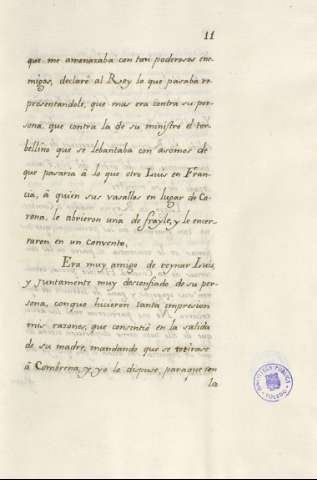 11
que me amenazaba con tan poderosos ene
migos, declaré al Rey lo que pasaba re
presentandole, que mas era contra su per
sona, que contra la de su ministro el tor
bellino que se lebantaba con asomos de
que pasaria á lo que otro Luis en Fran
cia, á quien sus vasallos en lugar de Co
rona, le abrieron una de frayle, y le encer
raron en un convento.
Era muy amigo de reynar Luis,
y juntamente muy desconfiado de su per
sona, conque hicieron tanta impresion
mis razones, que consintió en la salida
de su madre, mandando que se retirase
á Combrena, y yo lo dispuse, para que con
la
BIBLIOTECA PUBLICA
TOLEDO